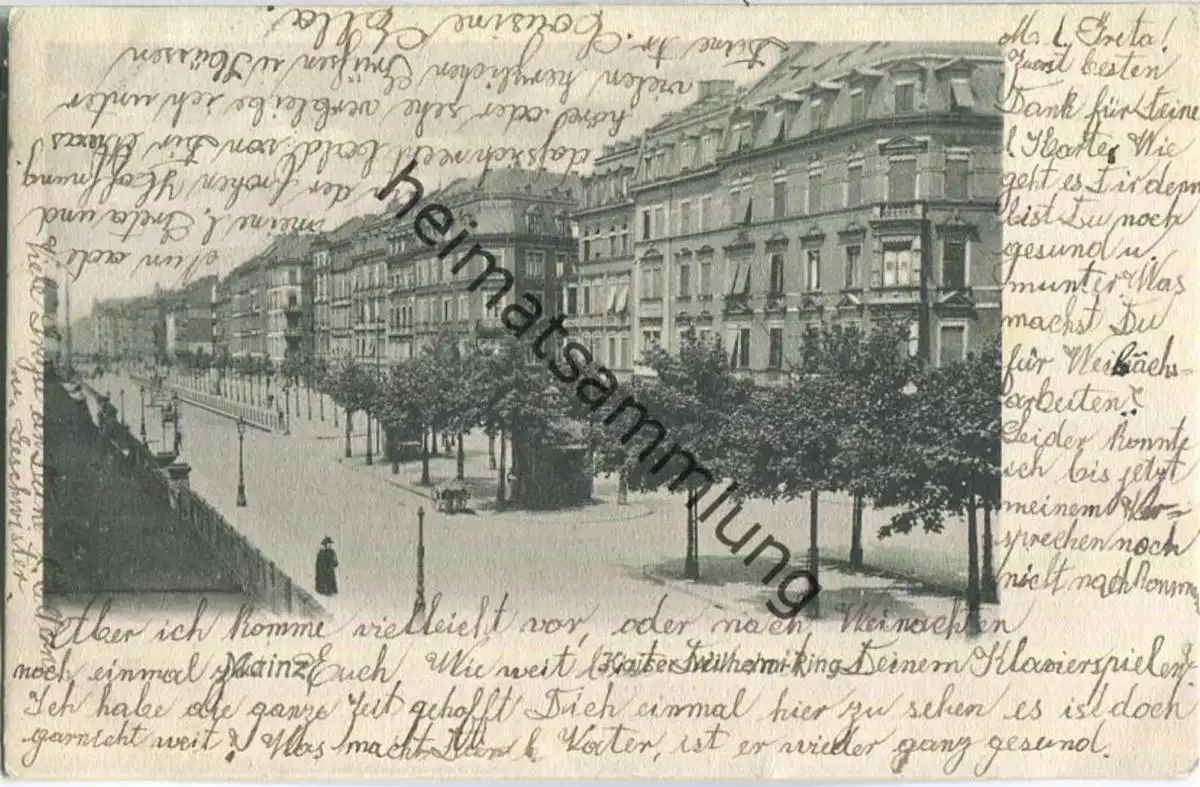 M. l. Greta!
Zuerst besten
Dank für Deine
l. Karte, Wie
geht es Dir denn
bist Du noch
gesund u.
munter Was
machst Du
für Weihnachts-
arbeiten?
Leider konnte
ich bis jetzt
meinem Ver-
sprechen noch
nicht nachkomm
Aber ich komme vielleicht vor, oder nach Weinachten
noch einmal zu Euch, Wie weit bist Du mit Deinem Klavierspielen?
Mainz
Kaiser Wilhelm-Ring
Ich habe die ganze Zeit gehofft Dich einmal hier zu sehen es ist doch
garnicht weit? Was macht Dein l. Vater, ist er wieder ganz gesund.
Nun ade
meine l. Greta und
in der frohen Hoffnung
dass ich recht bald von Dir etwas
höre oder sehe verbleibe ich unter
vielen herzlichen Grüßen u. Küssen
Deine tr. Cousine Ella.
Viele Grüße an Deine l. Eltern
u. Geschwister
heimatsammlung.de